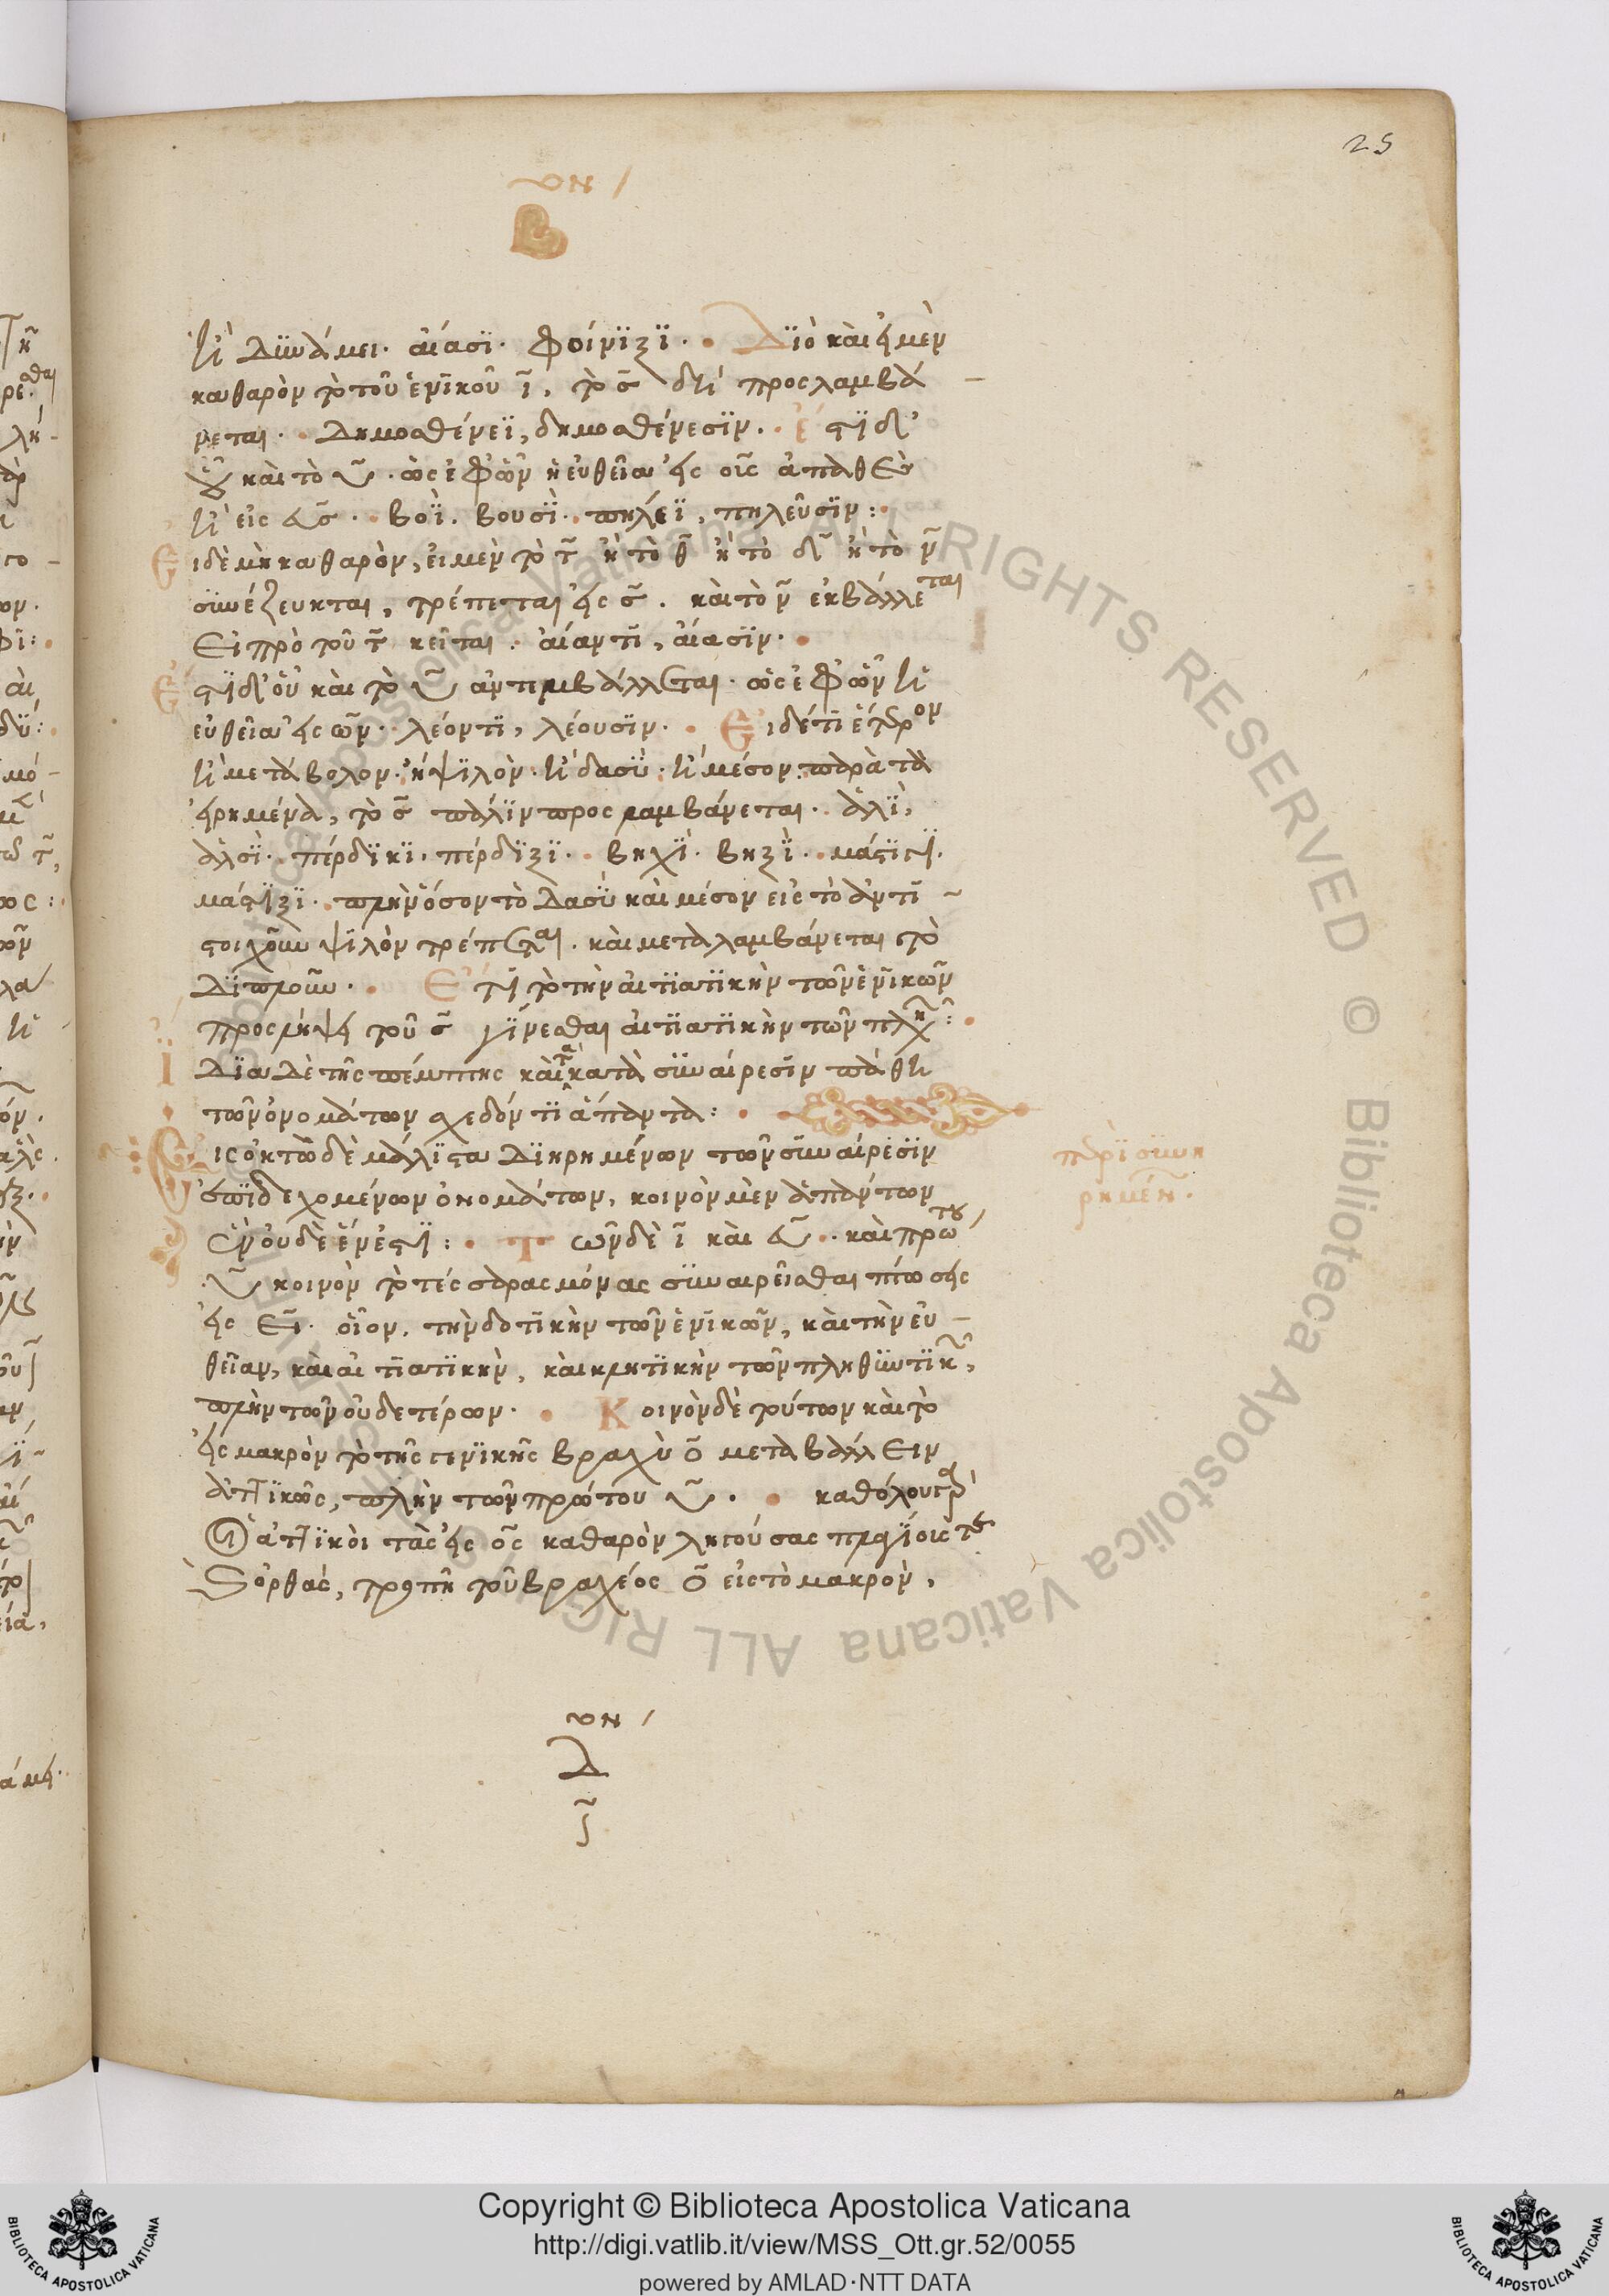 25
ἢ δυνάμει. αἴασι. φοίνιξι. Διὸ καὶ εἰ μὲν
καθαρὸν τὸ τοῦ ἑνικοῦ ι̅, τὸ σ̅ δὴ προσλαμβά
νεται. Δημοσθένεϊ, δημοσθένεσιν. ἔστι δ'
οὗ καὶ τὸ υ̅. ὡς ἐφ' ὧν ἡ εὐθεῖα εἰς
ἢ εἰς . βοΐ. βουσί. πηλέϊ, πηλεῦσιν:
Ει δὲ μὴ καθαρὸν, εἰ μὲν τὸ τ̅ ἢ τὸ θ̅ ἢ τὸ δ̅ ἢ τὸ ν̅
συνέζευκται, τρέπεται εἰς σ̅. καὶ τὸ ν̅ ἐκβάλλεται
Εἰ πρὸ τοῦ τ̅ κεῖται. αἴαντι, αἴασιν.
Ἔστι δ' οὗ καὶ τὸ υ̅ ἀντεμβάλλεται. ὡς ἐφ' ὧν ἡ
εὐθεῖα εἰς ων. λέοντι, λέουσιν. Ει δέ τι ἕτερον
ἢ μετάβολον. ἢ ψιλὸν. ἢ δασὺ. ἢ μέσον παρὰ τὰ
εἰρημένα, τὸ σ̅ πάλιν προσλαμβάνεται. ἁλὶ,
ἁλσὶ. πέρδικι. πέρδιξι. βηχὶ. βηξὶ. μάστιγι.
μάστιξι. πλὴν ὅσον τὸ Δασὺ καὶ μέσον εἰς τὸ ἀντι
στοιχοῦν ψιλὸν τρέπεται. καὶ μεταλαμβάνεται τὸ
Διπλοῦν. Ἔτι τὸ τὴν αἰτιατικὴν τῶν ἑνικῶν
προσλήψει τοῦ σ̅ γίνεσθαι αἰτιατικὴν τῶν πλη:
Ιδια Δὲ τῆς πέμπτης καὶ τὰ κατὰ συναίρεσιν πάθη
τῶν ὀνομάτων σχεδόν τι ἅπαντα:
Εἰς ὀκτὼ δὲ μάλιστα Διῃρημένων τῶν συναίρεσιν
ἐπιδεχομένων ὀνομάτων, κοινὸν μὲν ἁπάντων
ἓν οὐδὲ ἕν ἐστι: Τῶν δὲ ι̅ καὶ . καὶ πρώτου
υ̅ κοινὸν τὸ τέσσαρας μόνας συναιρεῖσθαι πτώσεις
εἰς . οἷον. τὴν δοτικὴν τῶν ἑνικῶν, καὶ τὴν εὐ
θεῖαν, καὶ αἰτιατικὴν, καὶ κλητικὴν τῶν πληθυντικ,
πλὴν τῶν οὐδετέρων. Κοινὸν δὲ τούτων καὶ τὸ
εἰς μακρὸν τὸ τῆς γενικῆς βραχὺ ο̅ μεταβάλλειν
ἀττικῶς, πλὴν τῶν πρώτου υ̅. καθόλου γὰρ
Οἱ ἀττικοὶ τὰς εἰς ος καθαρὸν ληγούσας ποιοῦσι
ὀρθὰς, τροπῇ τοῦ βραχέος ο̅ εἰς τὸ μακρὸν,
περὶ συνῃ
ρημέν.
Copyright © Biblioteca Apostolica Vaticana
http://digi.vatlib.it/view/MSS_Ott.gr.52/0055
powered by AMLAD·NTT DATA
BIBLIOTECA APOSTOLICA VATICANA
BIBLIOTECA APOSTOLICA VATICANA
Biblioteca Apostolica Vaticana ALL RIGHTS RESERVED ©